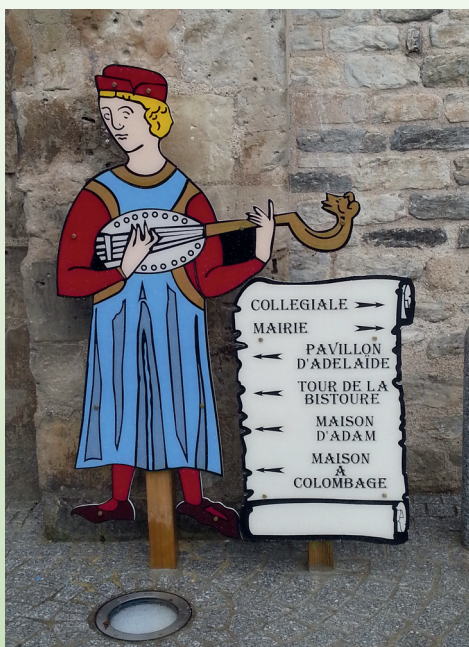 COLLEGIALE
MAIRIE
PAVILLON
D'ADELAÏDE
TOUR DE LA
BISTOURE
MAISON
D'ADAM
MAISON
A
COLOMBAGE